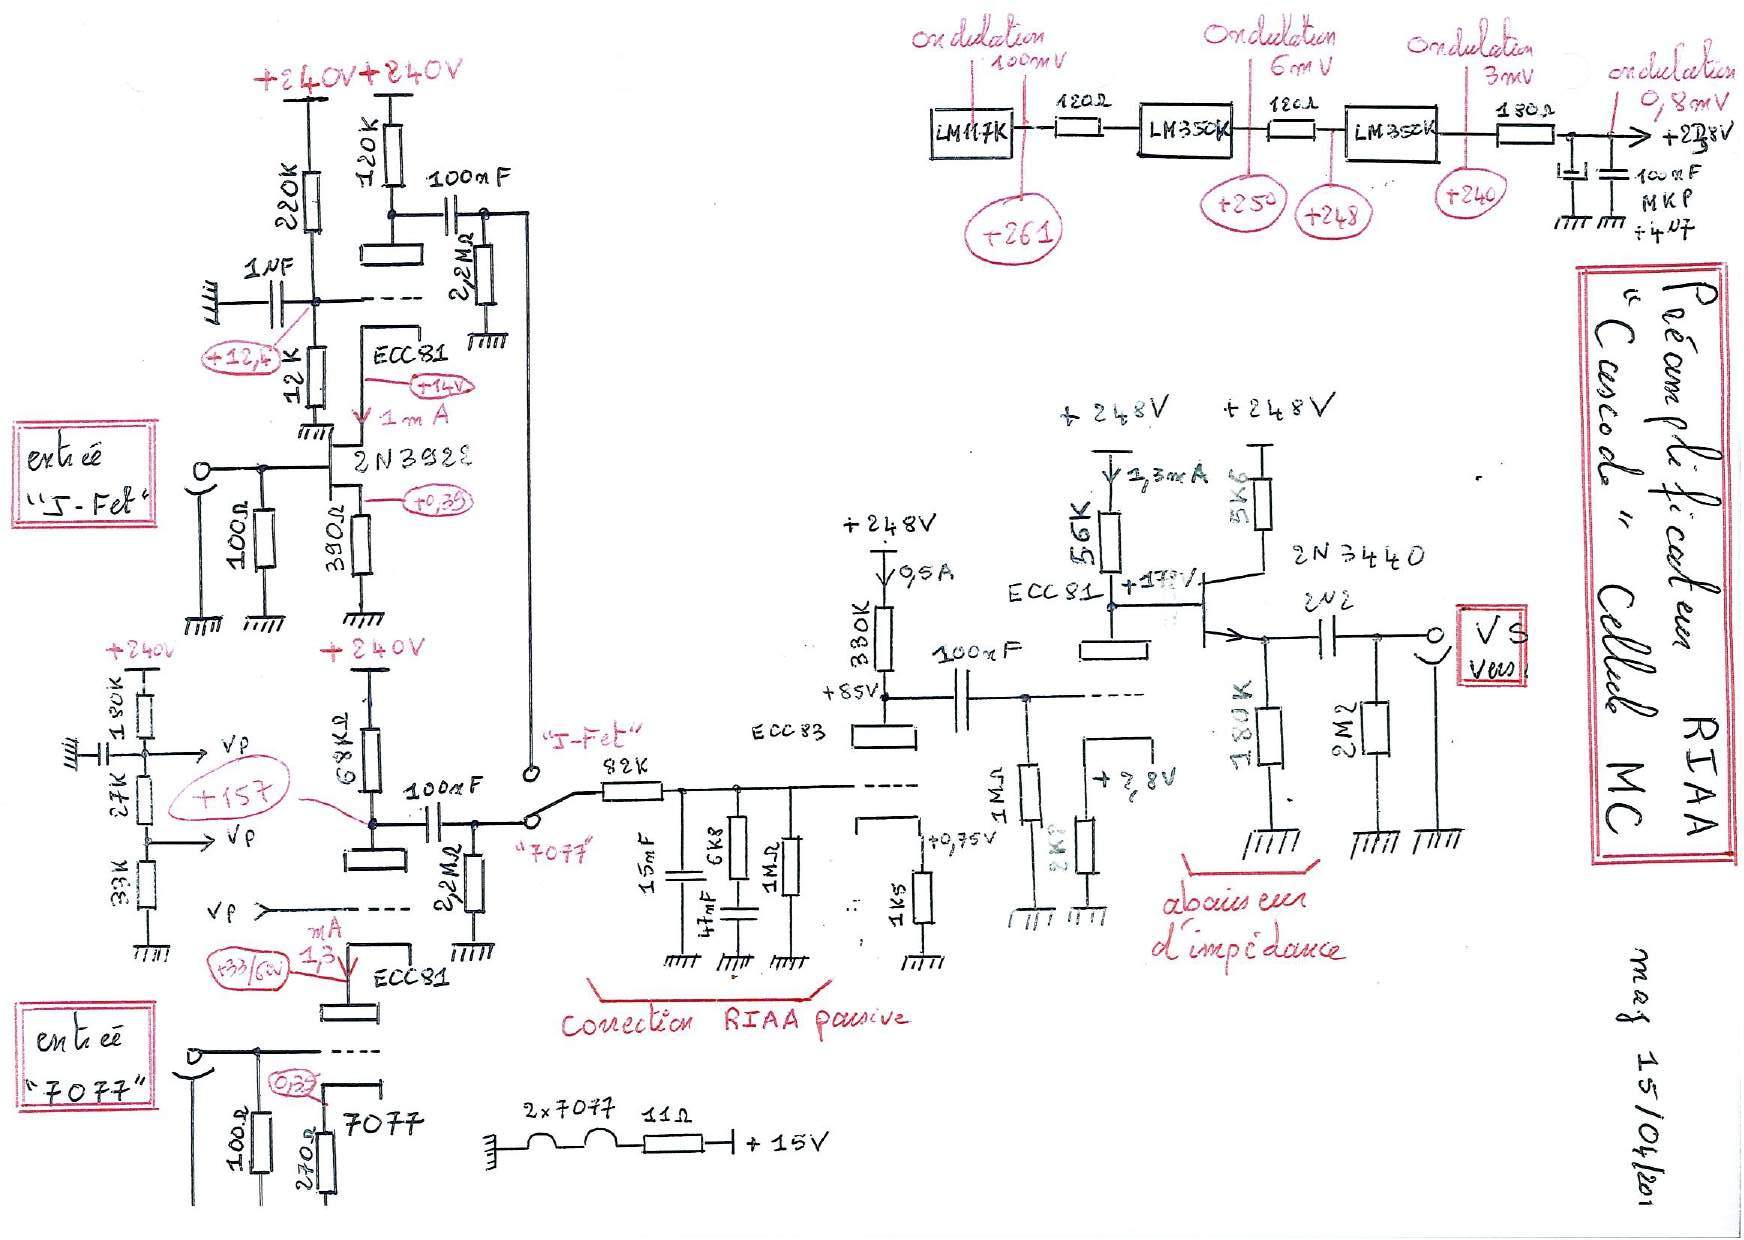 ondulation
100mV
Ondulation
6mV
Ondulation
3mV
ondulation
0,8mV
LM117K
120Ω
LM350K
120Ω
LM350K
180Ω
100nF
MKP
+261
+250
+248
+240
+240V +240V
220K
120K
100nF
2,2MΩ
12K
ECC81
+14V
1mA
entrée
"J-Fet"
100Ω
390Ω
+0,35
+240V
180K
27K
33K
VP
VP
VP
+157
+240V
68KΩ
100nF
2,2MΩ
mA
1,3
ECC81
"J-Fet"
"7077"
82K
15nF
6K8
47nF
1MΩ
Correction RIAA passive
entrée
"7077"
100Ω
0,35
270Ω
7077
2x7077
11Ω
+15V
+248V
0,5A
330K
+85V
ECC83
100nF
+0,75V
1K5
1MΩ
+248V
1,3mA
56K
ECC81
+248V
5K6
2N3440
180K
2M2
VS
vers
abaisseur
d'impédance
Préamplificateur RIAA
"Cascode" Cellule MC
15/04/201